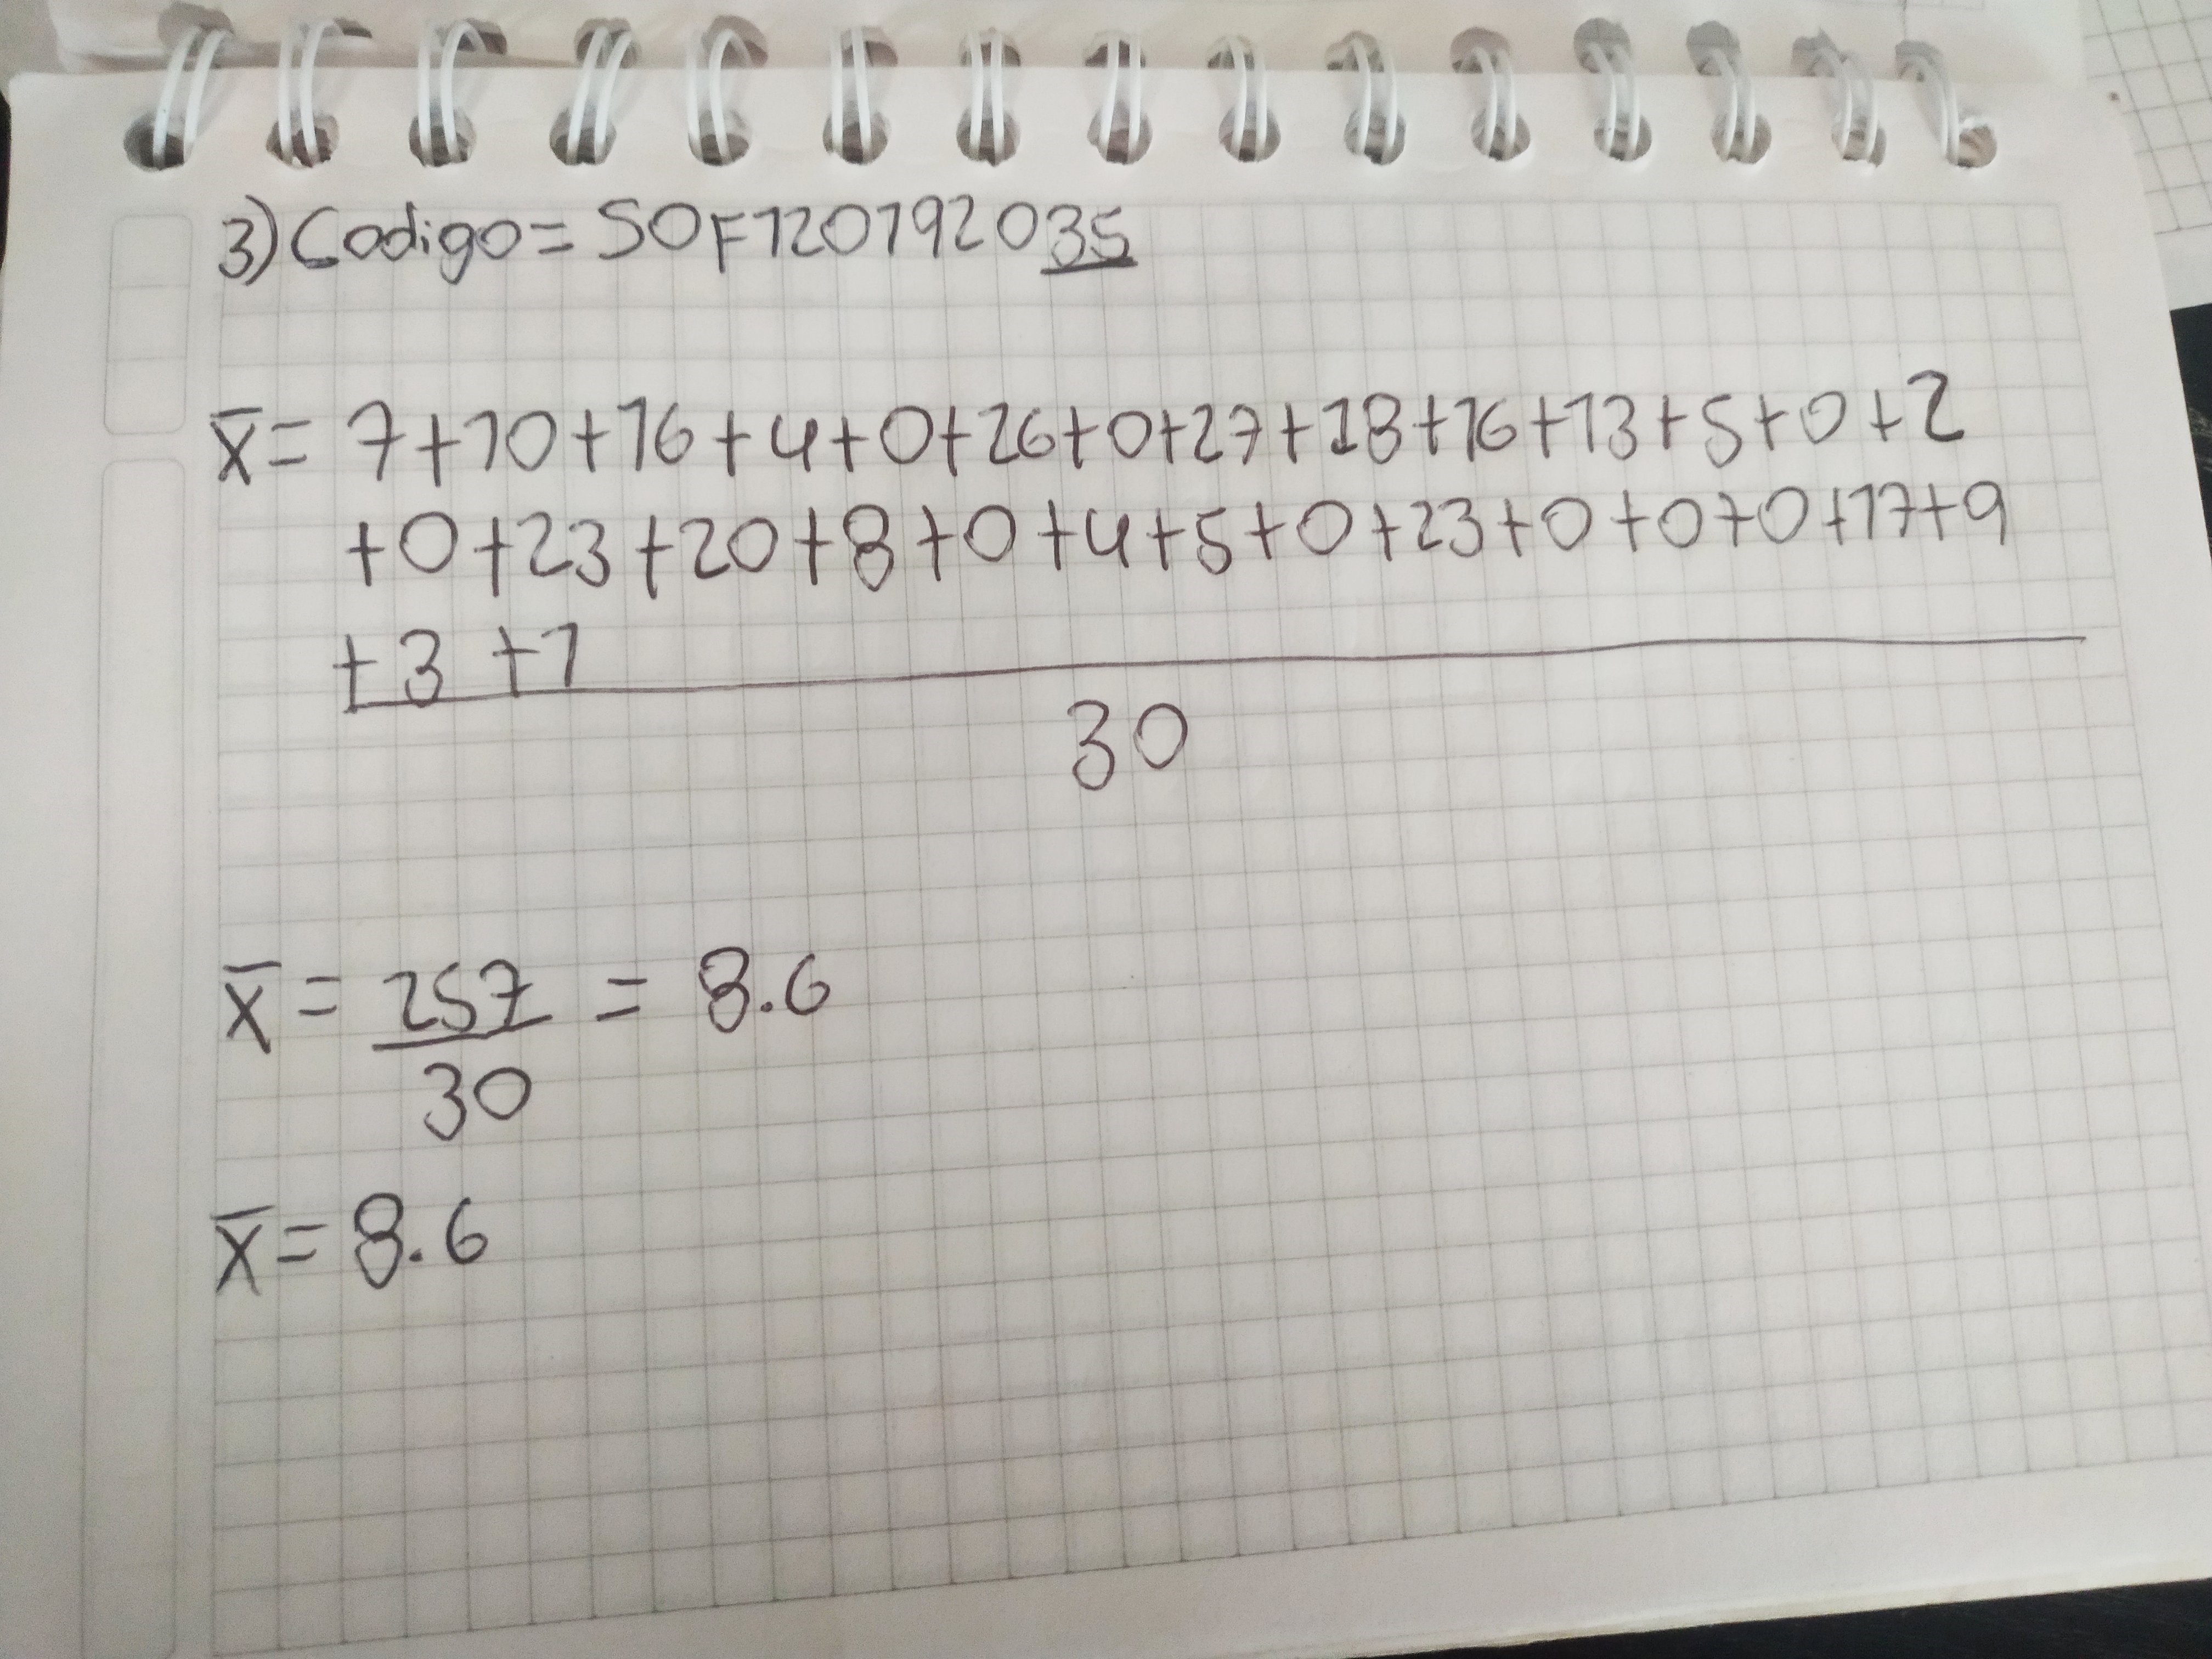 3) Codigo = SOF120192035
x̄ = 7+10+16+4+0+26+0+27+18+16+13+5+0+2
+0+23+20+8+0+4+5+0+23+0+0+0+17+9
+3 +1
30
x̄ = 257 = 8.6
30
x̄ = 8.6